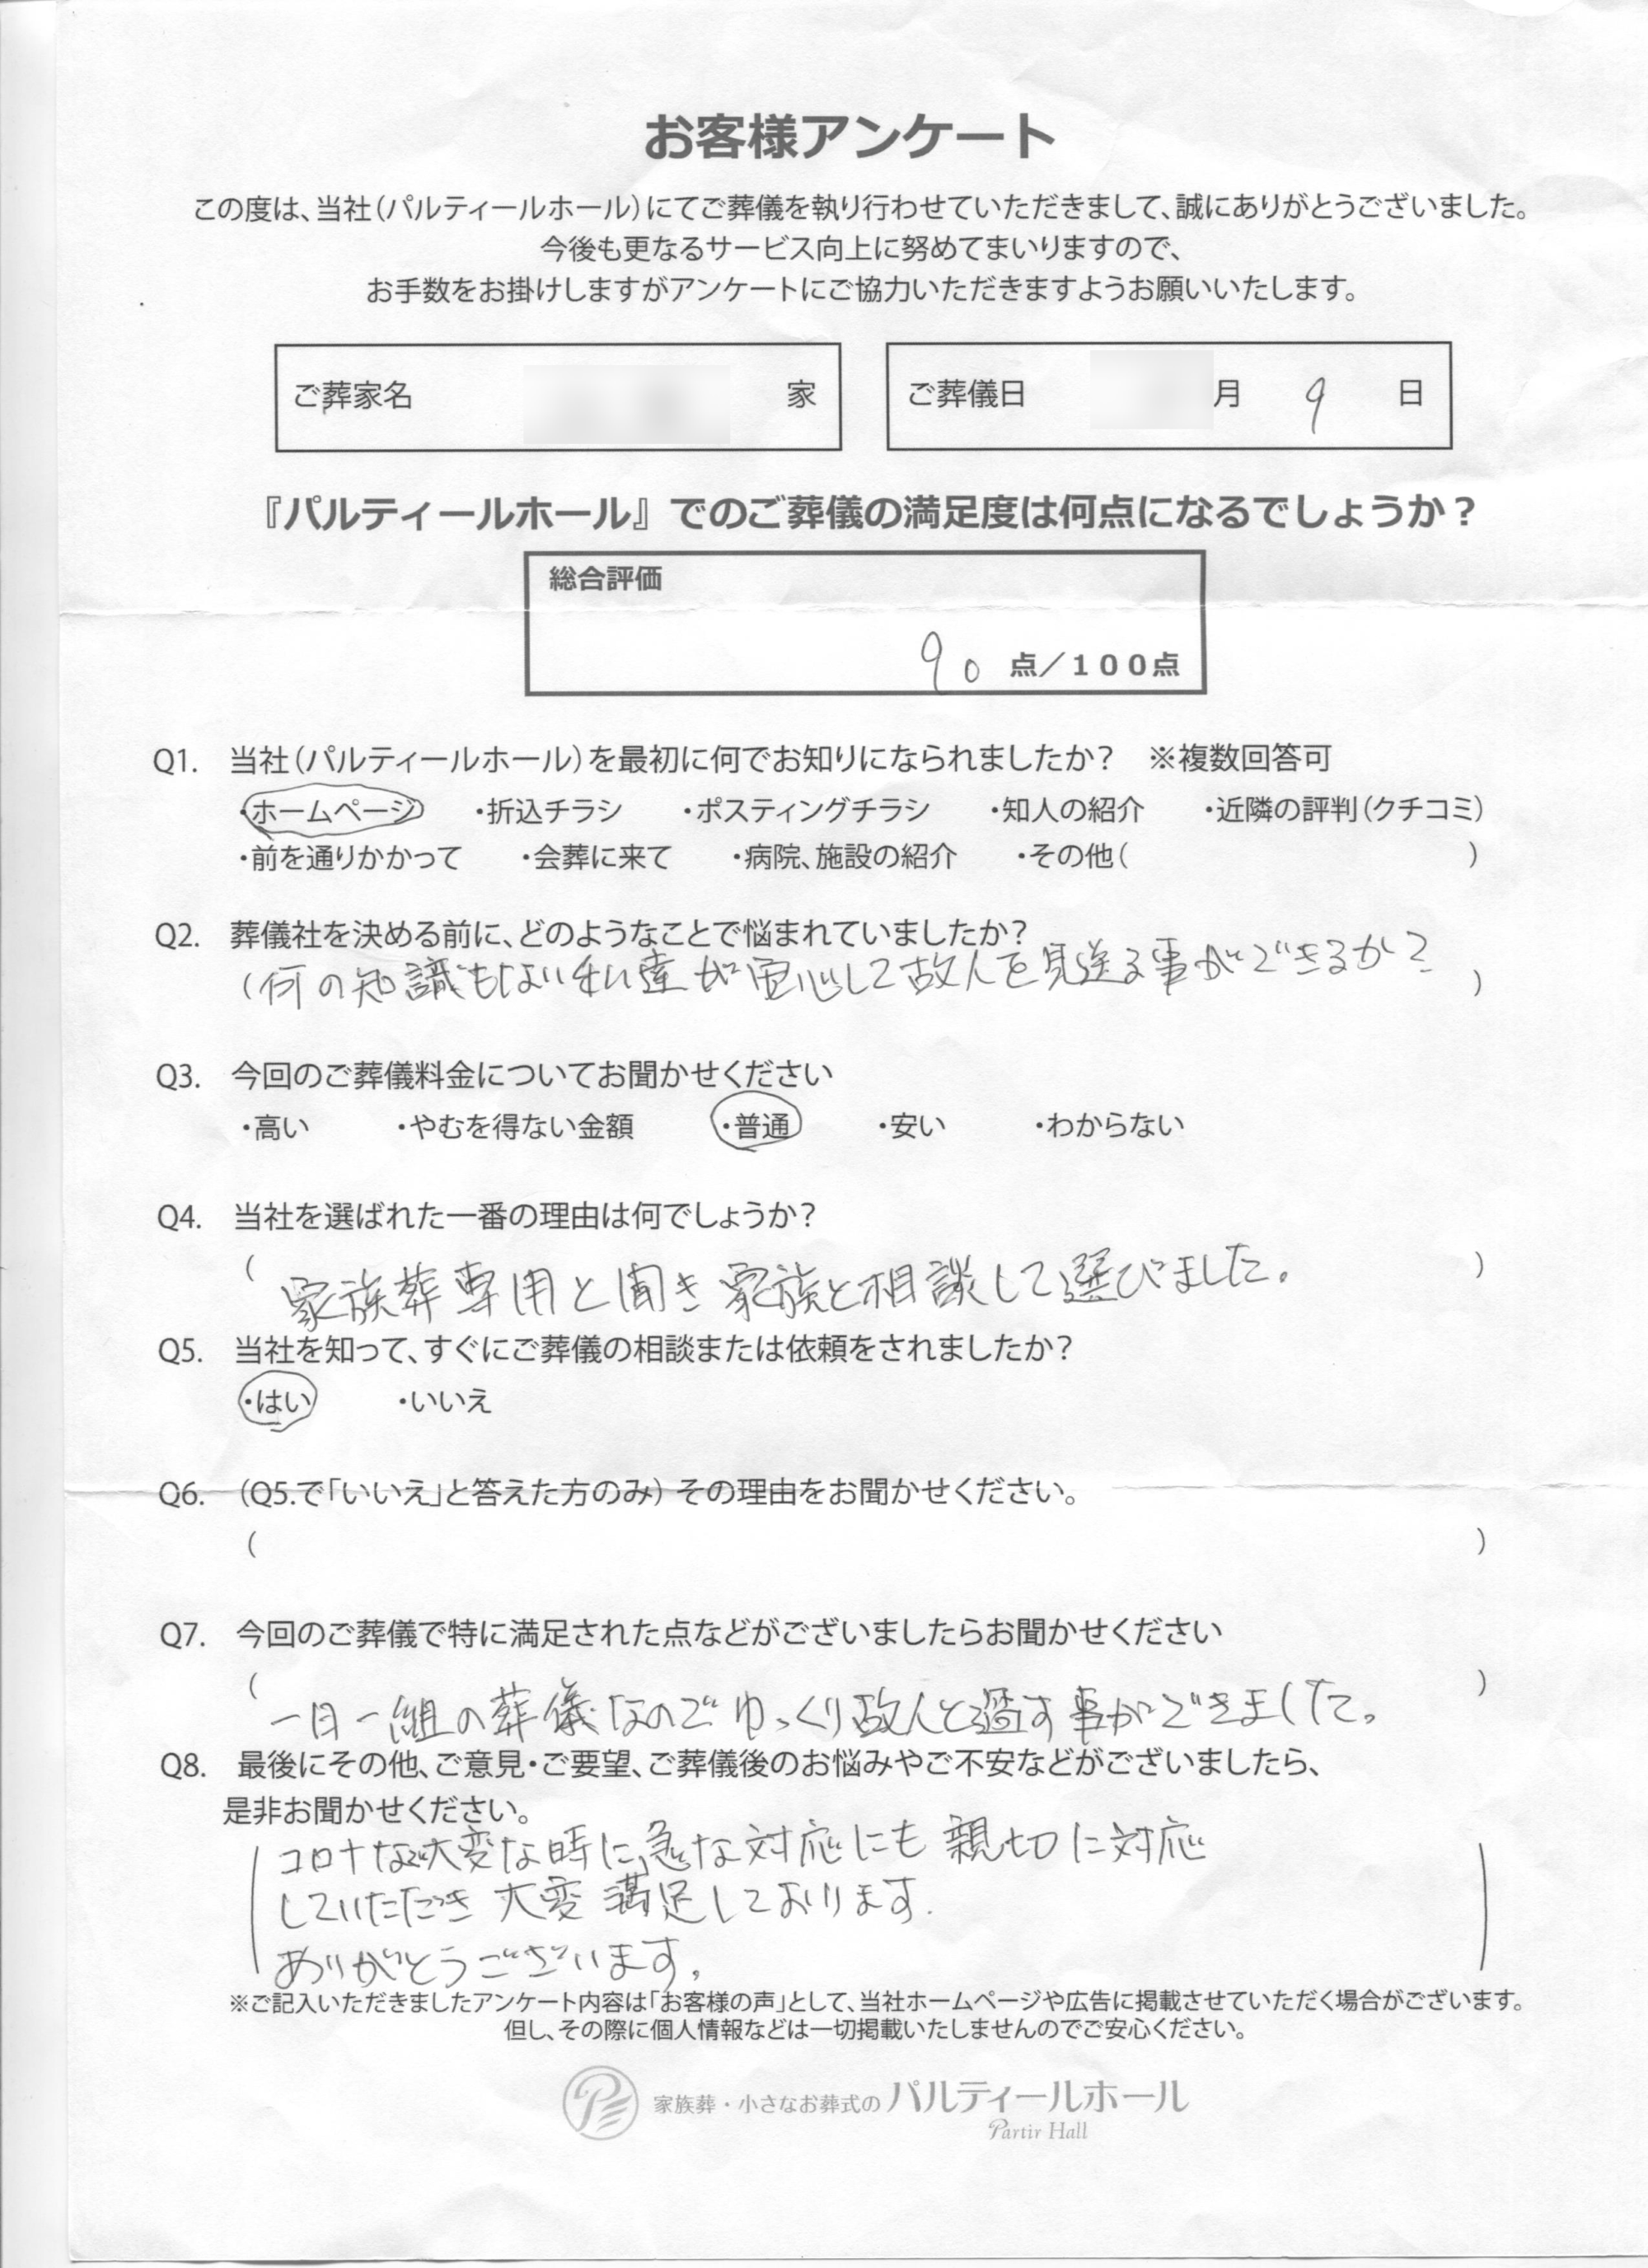 お客様アンケート
この度は、当社(パルティールホール)にてご葬儀を執り行わせていただきまして、誠にありがとうございました。
今後も更なるサービス向上に努めてまいりますので、
お手数をお掛けしますがアンケートにご協力いただきますようお願いいたします。
ご葬家名 家 ご葬儀日 月 9 日
『パルティールホール』でのご葬儀の満足度は何点になるでしょうか？
総合評価
90 点／100点
Q1. 当社(パルティールホール)を最初に何でお知りになられましたか？ ※複数回答可
・ホームページ ・折込チラシ ・ポスティングチラシ ・知人の紹介 ・近隣の評判(クチコミ)
・前を通りかかって ・会葬に来て ・病院、施設の紹介 ・その他( )
Q2. 葬儀社を決める前に、どのようなことで悩まれていましたか？
(何の知識もない私達が安心して故人を見送る事ができるか？)
Q3. 今回のご葬儀料金についてお聞かせください
・高い ・やむを得ない金額 ・普通 ・安い ・わからない
Q4. 当社を選ばれた一番の理由は何でしょうか？
(家族葬専用と聞き家族と相談して選びました。)
Q5. 当社を知って、すぐにご葬儀の相談または依頼をされましたか？
・はい ・いいえ
Q6. (Q5.で「いいえ」と答えた方のみ) その理由をお聞かせください。
( )
Q7. 今回のご葬儀で特に満足された点などがございましたらお聞かせください
(一日一組の葬儀なのでゆっくり故人と過す事ができました。)
Q8. 最後にその他、ご意見・ご要望、ご葬儀後のお悩みやご不安などがございましたら、
是非お聞かせください。
コロナなど大変な時に、急な対応にも親切に対応
していただき大変満足しております.
ありがとうございます。
※ご記入いただきましたアンケート内容は「お客様の声」として、当社ホームページや広告に掲載させていただく場合がございます。
但し、その際に個人情報などは一切掲載いたしませんのでご安心ください。
家族葬・小さなお葬式の パルティールホール
Partir Hall